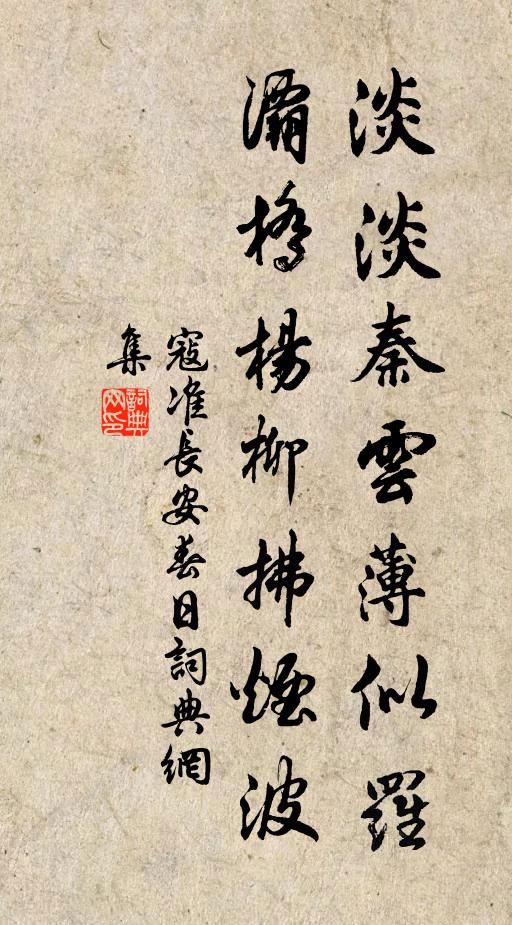 淡淡秦雲薄似羅
灞橋楊柳拂煙波
寇准長安春日詞典網
集
詞典
網印